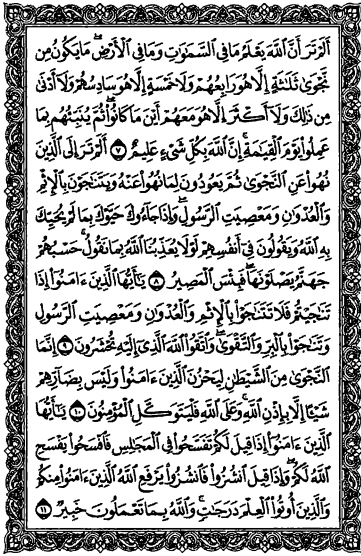 أَلَمْ تَرَ أَنَّ ٱللَّهَ يَعْلَمُ مَا فِي ٱلسَّمَٰوَٰتِ وَمَا فِي ٱلْأَرْضِ ۖ مَا يَكُونُ مِن
نَّجْوَىٰ ثَلَٰثَةٍ إِلَّا هُوَ رَابِعُهُمْ وَلَا خَمْسَةٍ إِلَّا هُوَ سَادِسُهُمْ وَلَآ أَدْنَىٰ
مِن ذَٰلِكَ وَلَآ أَكْثَرَ إِلَّا هُوَ مَعَهُمْ أَيْنَ مَا كَانُوا۟ ۖ ثُمَّ يُنَبِّئُهُم بِمَا
عَمِلُوا۟ يَوْمَ ٱلْقِيَٰمَةِ ۚ إِنَّ ٱللَّهَ بِكُلِّ شَىْءٍ عَلِيمٌ ٧ أَلَمْ تَرَ إِلَى ٱلَّذِينَ
نُهُوا۟ عَنِ ٱلنَّجْوَىٰ ثُمَّ يَعُودُونَ لِمَا نُهُوا۟ عَنْهُ وَيَتَنَٰجَوْنَ بِٱلْإِثْمِ
وَٱلْعُدْوَٰنِ وَمَعْصِيَتِ ٱلرَّسُولِ ۖ وَإِذَا جَآءُوكَ حَيَّوْكَ بِمَا لَمْ يُحَيِّكَ
بِهِ ٱللَّهُ وَيَقُولُونَ فِىٓ أَنفُسِهِمْ لَوْلَا يُعَذِّبُنَا ٱللَّهُ بِمَا نَقُولُ ۚ حَسْبُهُمْ
جَهَنَّمُ يَصْلَوْنَهَا ۖ فَبِئْسَ ٱلْمَصِيرُ ٨ يَٰٓأَيُّهَا ٱلَّذِينَ ءَامَنُوٓا۟ إِذَا
تَنَٰجَيْتُمْ فَلَا تَتَنَٰجَوْا۟ بِٱلْإِثْمِ وَٱلْعُدْوَٰنِ وَمَعْصِيَتِ ٱلرَّسُولِ
وَتَنَٰجَوْا۟ بِٱلْبِرِّ وَٱلتَّقْوَىٰ ۖ وَٱتَّقُوا۟ ٱللَّهَ ٱلَّذِىٓ إِلَيْهِ تُحْشَرُونَ ٩ إِنَّمَا
ٱلنَّجْوَىٰ مِنَ ٱلشَّيْطَٰنِ لِيَحْزُنَ ٱلَّذِينَ ءَامَنُوا۟ وَلَيْسَ بِضَآرِّهِمْ
شَيْـًٔا إِلَّا بِإِذْنِ ٱللَّهِ ۚ وَعَلَى ٱللَّهِ فَلْيَتَوَكَّلِ ٱلْمُؤْمِنُونَ ١٠ يَٰٓأَيُّهَا
ٱلَّذِينَ ءَامَنُوٓا۟ إِذَا قِيلَ لَكُمْ تَفَسَّحُوا۟ فِى ٱلْمَجَٰلِسِ فَٱفْسَحُوا۟ يَفْسَحِ
ٱللَّهُ لَكُمْ ۖ وَإِذَا قِيلَ ٱنشُزُوا۟ فَٱنشُزُوا۟ يَرْفَعِ ٱللَّهُ ٱلَّذِينَ ءَامَنُوا۟ مِنكُمْ
وَٱلَّذِينَ أُوتُوا۟ ٱلْعِلْمَ دَرَجَٰتٍ ۚ وَٱللَّهُ بِمَا تَعْمَلُونَ خَبِيرٌ ١١